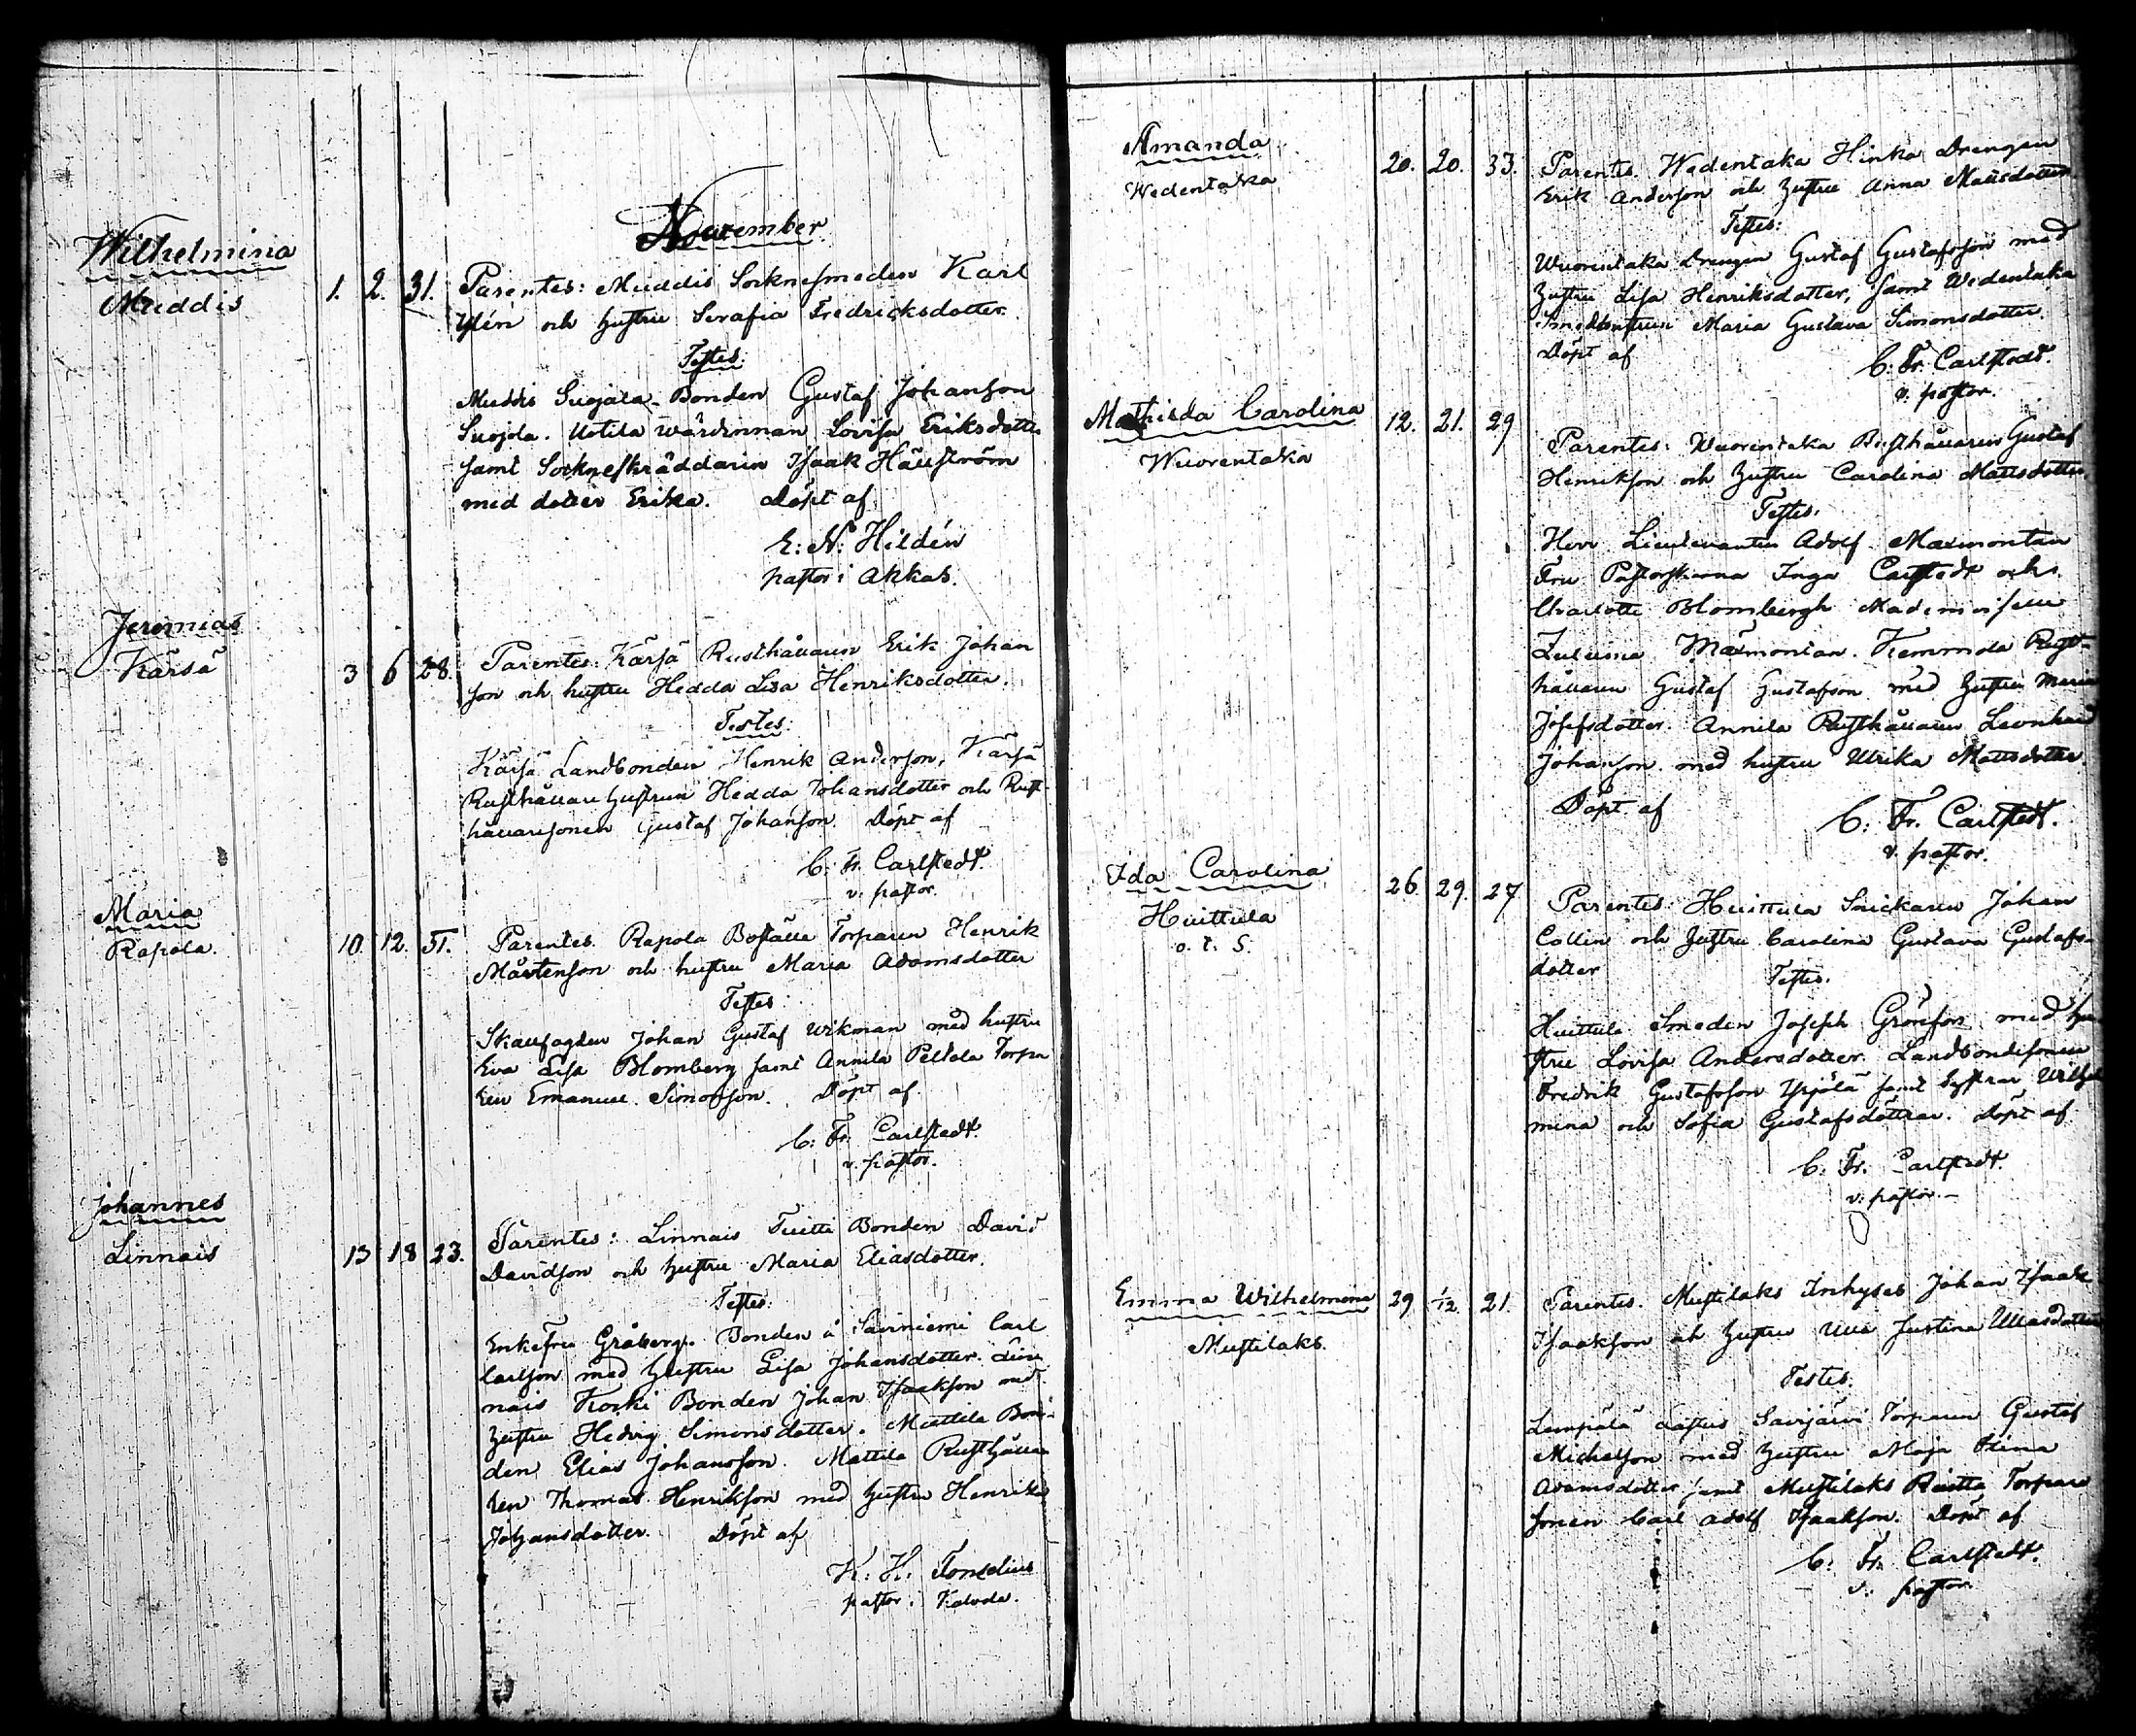 November
Wilhelmina
Muddis
1. 2. 31.
Parentes: Muddis Socknesmeden Karl
Ylén och hustru Serafia Fredricksdotter.
Testes:
Muddis Suojala Bonden Gustaf Johanson
Suojola. Uotila wärdinnan Lovisa Eriksdotter
samt Sockneskräddarin Isaak Häggström
med dotter Erika. Döpt af
E: N: Hildén
pastor i Akkas.
Jeremias
Kärsä
3 6 28.
Parentes: Kärsä Rusthållaren Erik Johan
son och hustru Hedda Lisa Henriksdotter.
Testes:
Kärsä Landbonden Henrik Anderson, Kärsä
Rusthållare hustrun Hedda Johansdotter och Rust-
hållaresonen Gustaf Johanson. Döpt af
C: Fr. Carlstedt.
v. pastor.
Maria
Rapola.
10. 12. 51.
Parentes. Rapola Boställe Torparen Henrik
Mårtenson och hustru Maria Adamsdotter
Testes:
Johan Gustaf Wikman med hustru
Eva Lisa Blomberg samt Annila Peltola Torpa
ren Emanuel Simonson. Döpt af
C: Fr. Carlstedt.
v. pastor.
Johannes
Linnais
13 18 23.
Parentes: Linnais Tuitti Bonden David
Davidson och hustru Maria Eliasdotter.
Testes:
Enkefru Gråberg. Bonden å Saviniemi Carl
Carlson med hustru Lisa Johansdotter. Lin
nais Koski Bonden Johan Isaakson med
hustru Hedvig Simonsdotter. Mattila Bon-
den Elias Johansson. Mattila Rusthålla
ren Thomas Henrikson med hustru Henrika
Johansdotter. Döpt af
K: H: Fonselius
pastor i Kalvola.
Amanda
Wedentaka
20. 20. 33.
Parentes. Wedentaka Hinka Drengen
Erik Anderson och hustru Anna Mattsdotter
Testes:
Wuorentaka Drengen Gustaf Gustafsson med
hustru Lisa Henriksdotter, samt Wedentaka
Smedhustrun Maria Gustava Simonsdotter.
Döpt af
C. Fr. Carlstedt.
v. pastor.
Mathilda Carolina
Wuorentaka
12. 21. 29
Parentes: Wuorentaka Rusthållaren Gustaf
Henrikson och hustru Carolina Mattsdotter.
Testes.
Herr Lieutenanten Adolf Maxmontan
Fru Pastorskorna Inga Carlstedt och
Charlotte Blombergh Mademoiselle
Maxmontan. Kemmola Rust-
hållaren Gustaf Gustafson med hustru Maria
Josefsdotter. Annila Rusthållaren Leonhard
Johanson med hustru Ulrika Mattsdotter
Döpt af
C: Fr. Carlstedt.
v. pastor.
Ida Carolina
Huittula
o. ä. S.
26. 29. 27
Parentes Huittula Snickaren Johan
Collin och hustru Carolina Gustava Gustafs-
dotter
Testes.
Huittula Smeden Joseph Grönfors med hu
stru Lovisa Andersdotter. Landbondesonen
Fredrik Gustafsson Yrjölä samt systrar Wilhel
mina och Sofia Gustafsdöttrar. Döpt af
C. Fr. Carlstedt.
v. pastor.—
Emma Wilhelmina
Mustilaks.
29 1/12. 21.
Parentes. Mustilaks Inhyses Johan Isaak
Isaakson och hustru Ulla Justina
Testes.
Lempälä Savijärvi Torparen Gustaf
Michelson med hustru Maja Stina
Adamsdotter samt Mustilaks Torpare
sonen Carl Adolf Isaakson. Döpt af
C: Fr. Carlstedt.
v. pastor